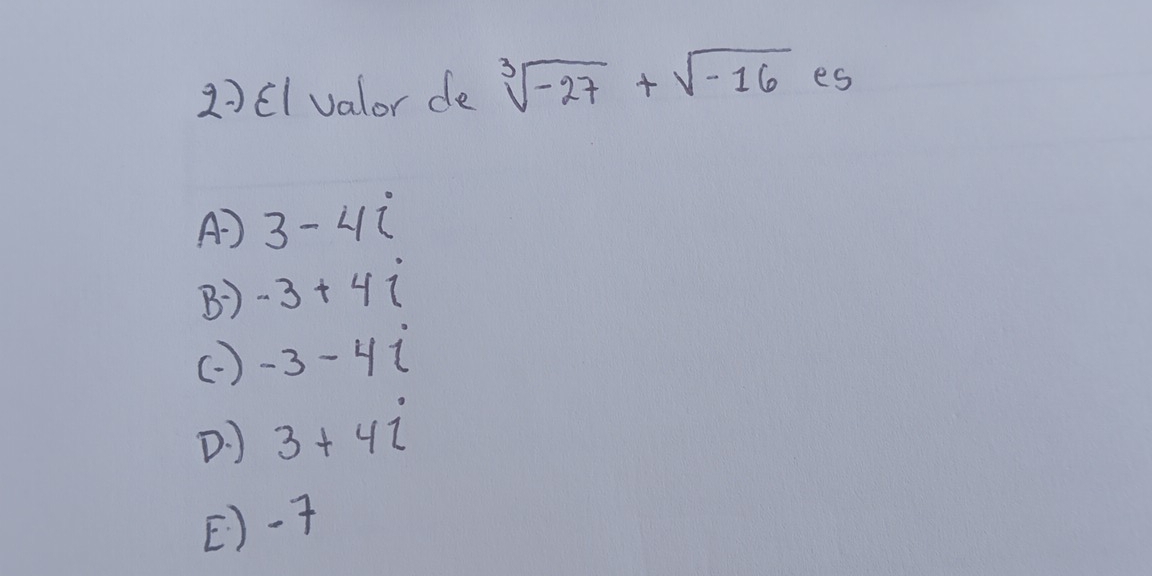 2.) El valor de ∛-27 + √-16 es
A.) 3 - 4i
B.) -3 + 4i
C.) -3 - 4i
D.) 3 + 4i
E.) -7